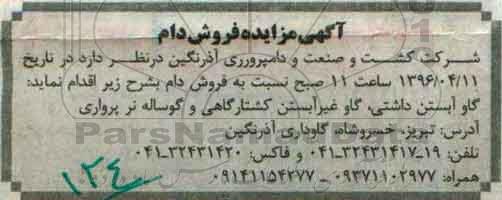 آگهی مزایده فروش دام
شرکت کشت و صنعت و دامپرورری آذرنگین درنظر دارد در تاریخ
۱۳۹۶/۰۴/۱۱ ساعت ۱۱ صبح نسبت به فروش دام بشرح زیر اقدام نماید:
گاو آبستن داشتی، گاو غیرآبستن کشتارگاهی و گوساله نر پرواری
آدرس: تبریز، خسروشاه، گاوداری آذرنگین
تلفن: ۱۹-۳۲۴۳۱۴۱۷-۰۴۱ و فاکس: ۳۲۴۳۱۴۲۰-۰۴۱
همراه: ۰۹۳۷۱۱۰۲۹۷۷ - ۰۹۱۴۱۱۵۴۲۷۷
۱۲۴